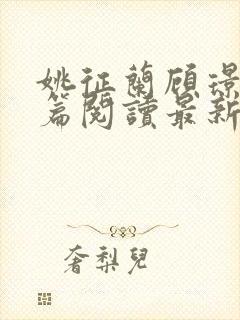 姚征蘭顾璟
篇閱讀最新
奢梨兒